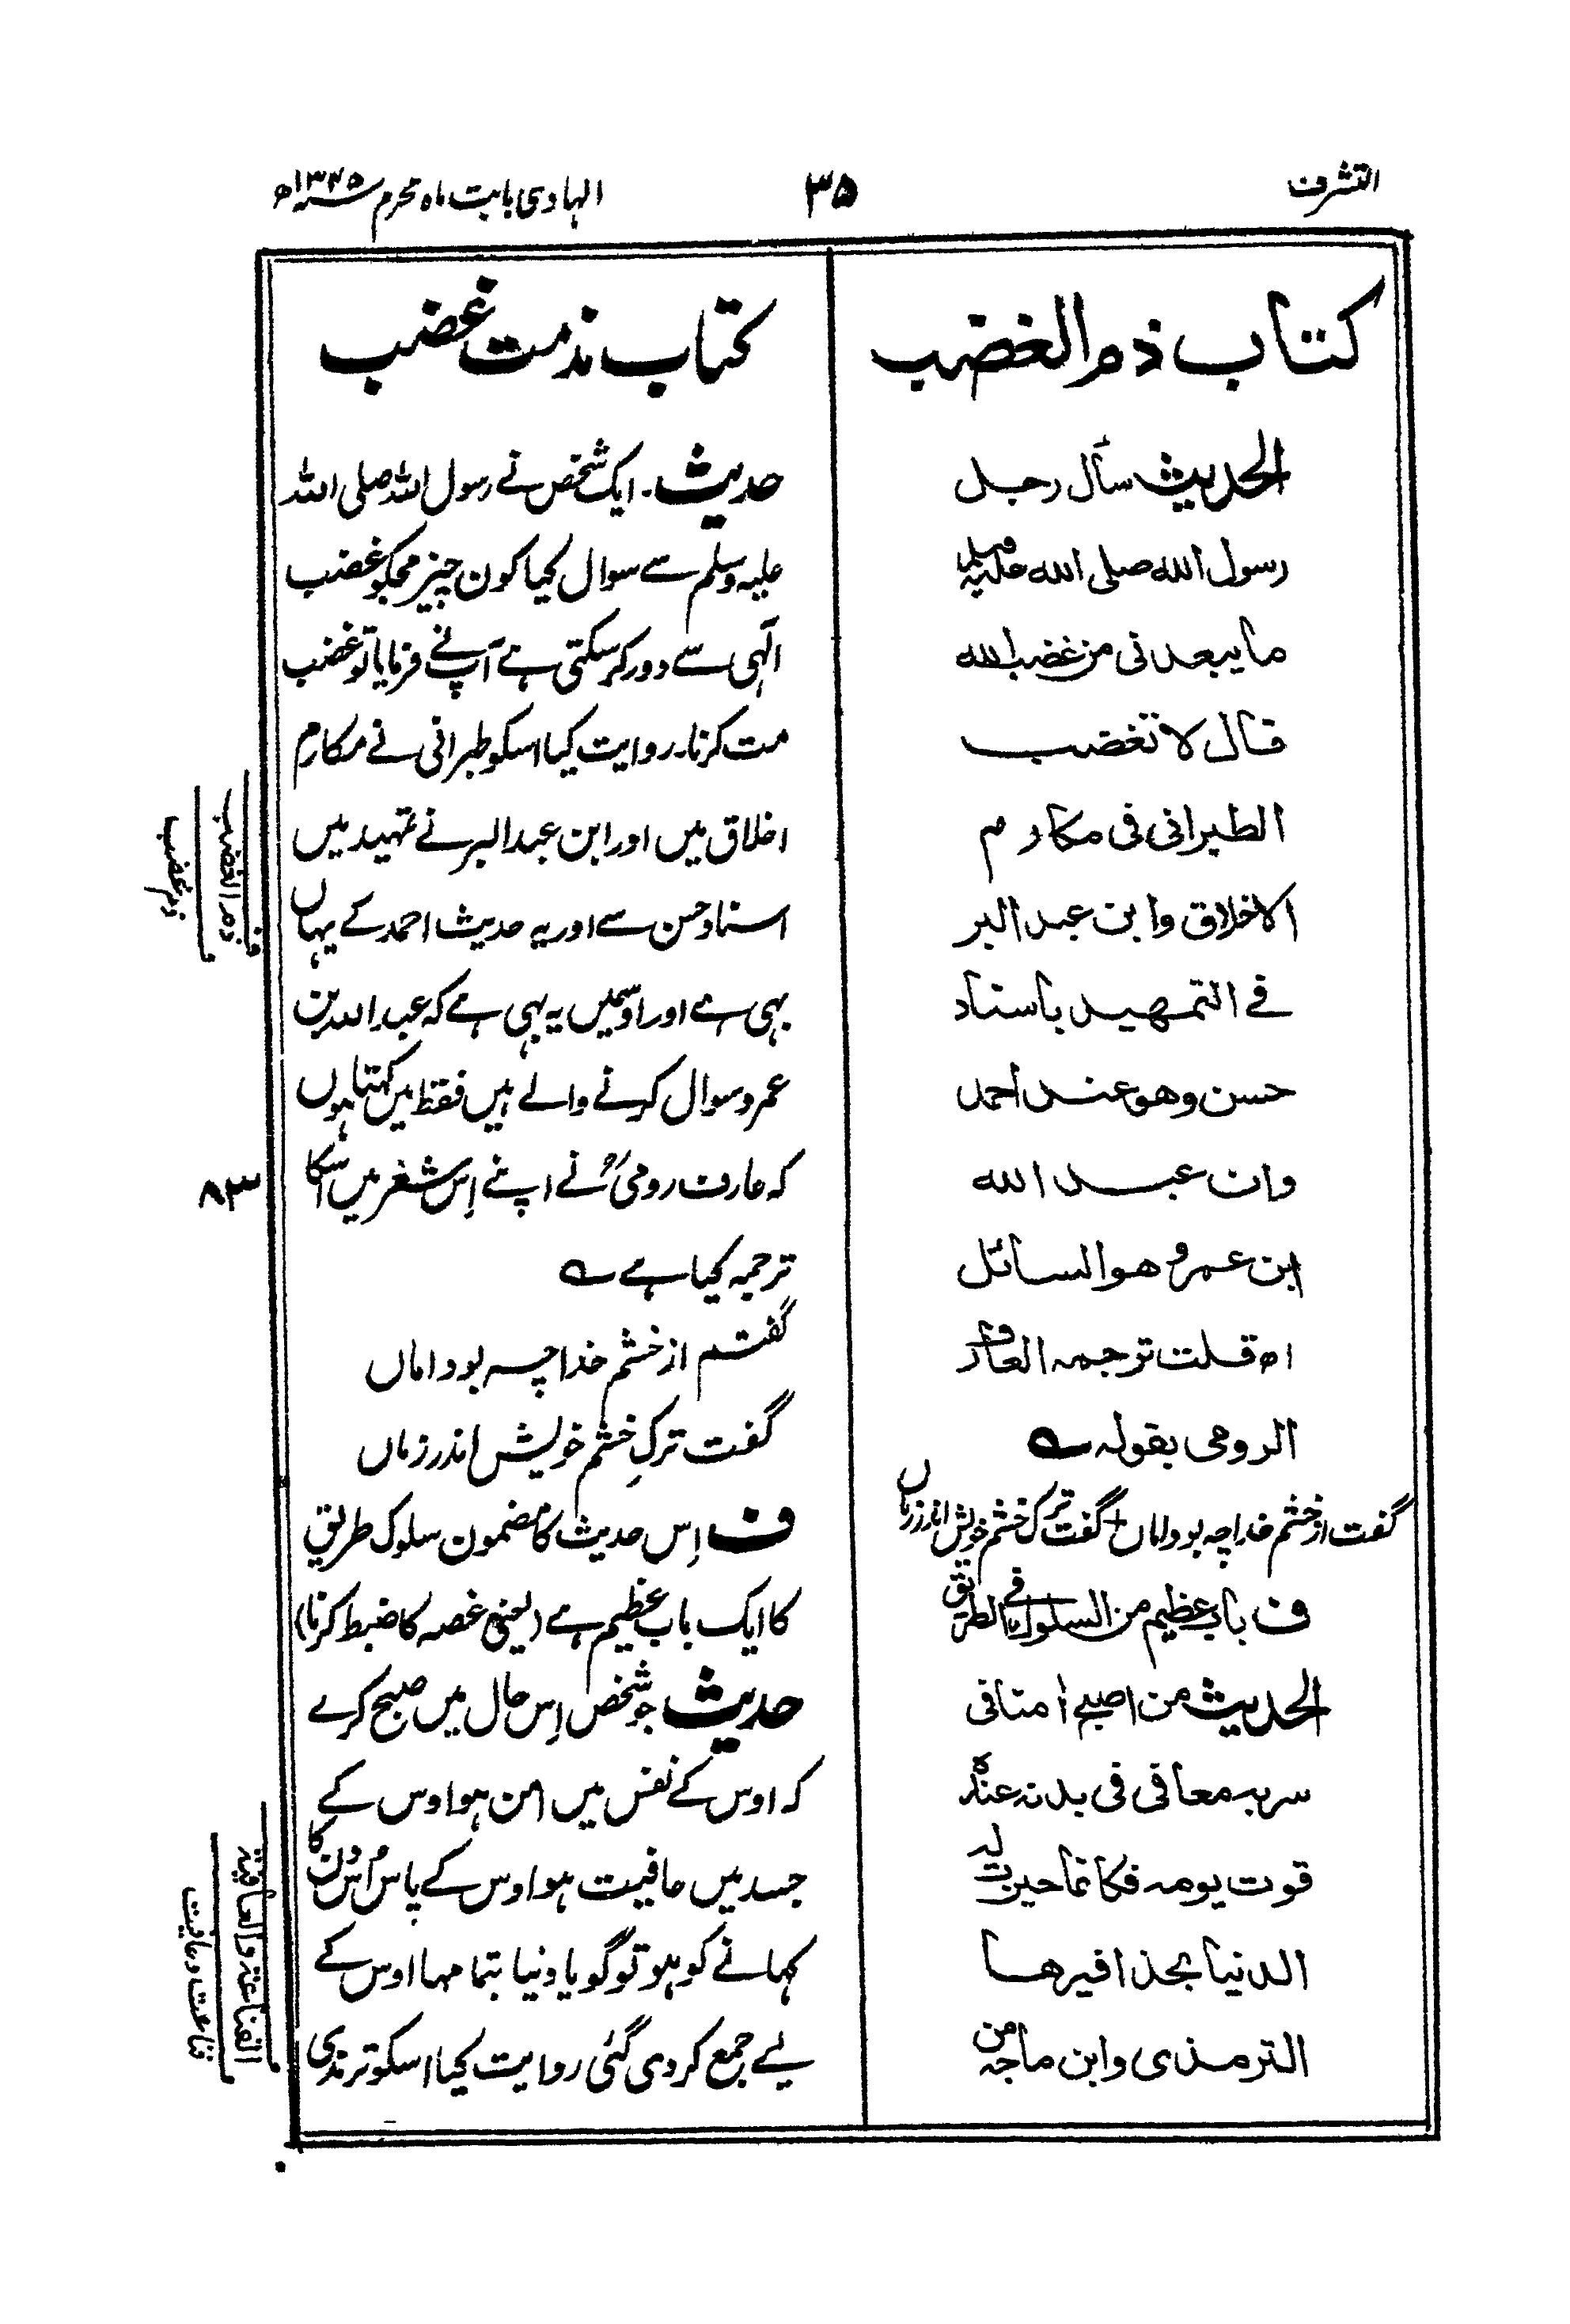 التشرف
۳۵
الہادی بابت ماہ محرم سنہ ۱۳۴۵ھ
کتاب ذم الغضب
الحدیث سأل رجل
رسول الله صلی الله علیہ وسلم
ما یبعدنی من غضب الله
قال لا تغضب
الطبرانی فی مکارم
الاخلاق وابن عبد البر
فے التمهید باسناد
حسن وهو عند أحمد
وان عبد الله
ابن عمرو هو السائل
اه قلت ترجمہ العارف
الرومی بقولہ ؎
گفت از خشم خدا چہ بود اماں + گفت ترک خشم خویش اندر زماں
ف باب عظیم من السلوک فے الطریق
الحدیث من اصبح أمنا فی
سربہ معافی فی بدنہ عندہ
قوت یومہ فکانما حیزت لہ
الدنیا بحذافیرها
الترمذی وابن ماجہ من
کتاب مذمت غضب
حدیث۔ ایک شخص نے رسول اللہ صلی اللہ
علیہ وسلم سے سوال کیا کون چیز مجکو غضب
الٰہی سے دور کر سکتی ہے آپ نے فرمایا تو غضب
مت کرنا۔ روایت کیا اسکو طبرانی نے مکارم
اخلاق میں اور ابن عبد البر نے تمہید میں
اسناد حسن سے اور یہ حدیث احمد کے یہاں
بہی ہے اور اوسمیں یہ بہی ہے کہ عبد اللہ بن
عمرو سوال کرنے والے ہیں فقط میں کہتا ہوں
کہ عارف رومیؒ نے اپنے اِس شعر میں اسکا
ترجمہ کیا ہے ؎
گفتم از خشم خدا چہ بود اماں
گفت ترکِ خشم خویش اندر زماں
ف اِس حدیث کا مضمون سلوک طریق
کا ایک باب عظیم ہے (یعنی غصہ کا ضبط کرنا)
حدیث جو شخص اِس حال میں صبح کرے
کہ اوس کے نفس میں امن ہو اوس کے
جسد میں عافیت ہو اوس کے پاس اُس دن کا
کہانے کو ہو تو گویا دنیا بتمامہا اوس کے
لیے جمع کر دی گئی روایت کیا اسکو ترمذی
ف ذم الغضب
ذم غضب
۸۳
القناعة والعافیة
قناعت و عافیت